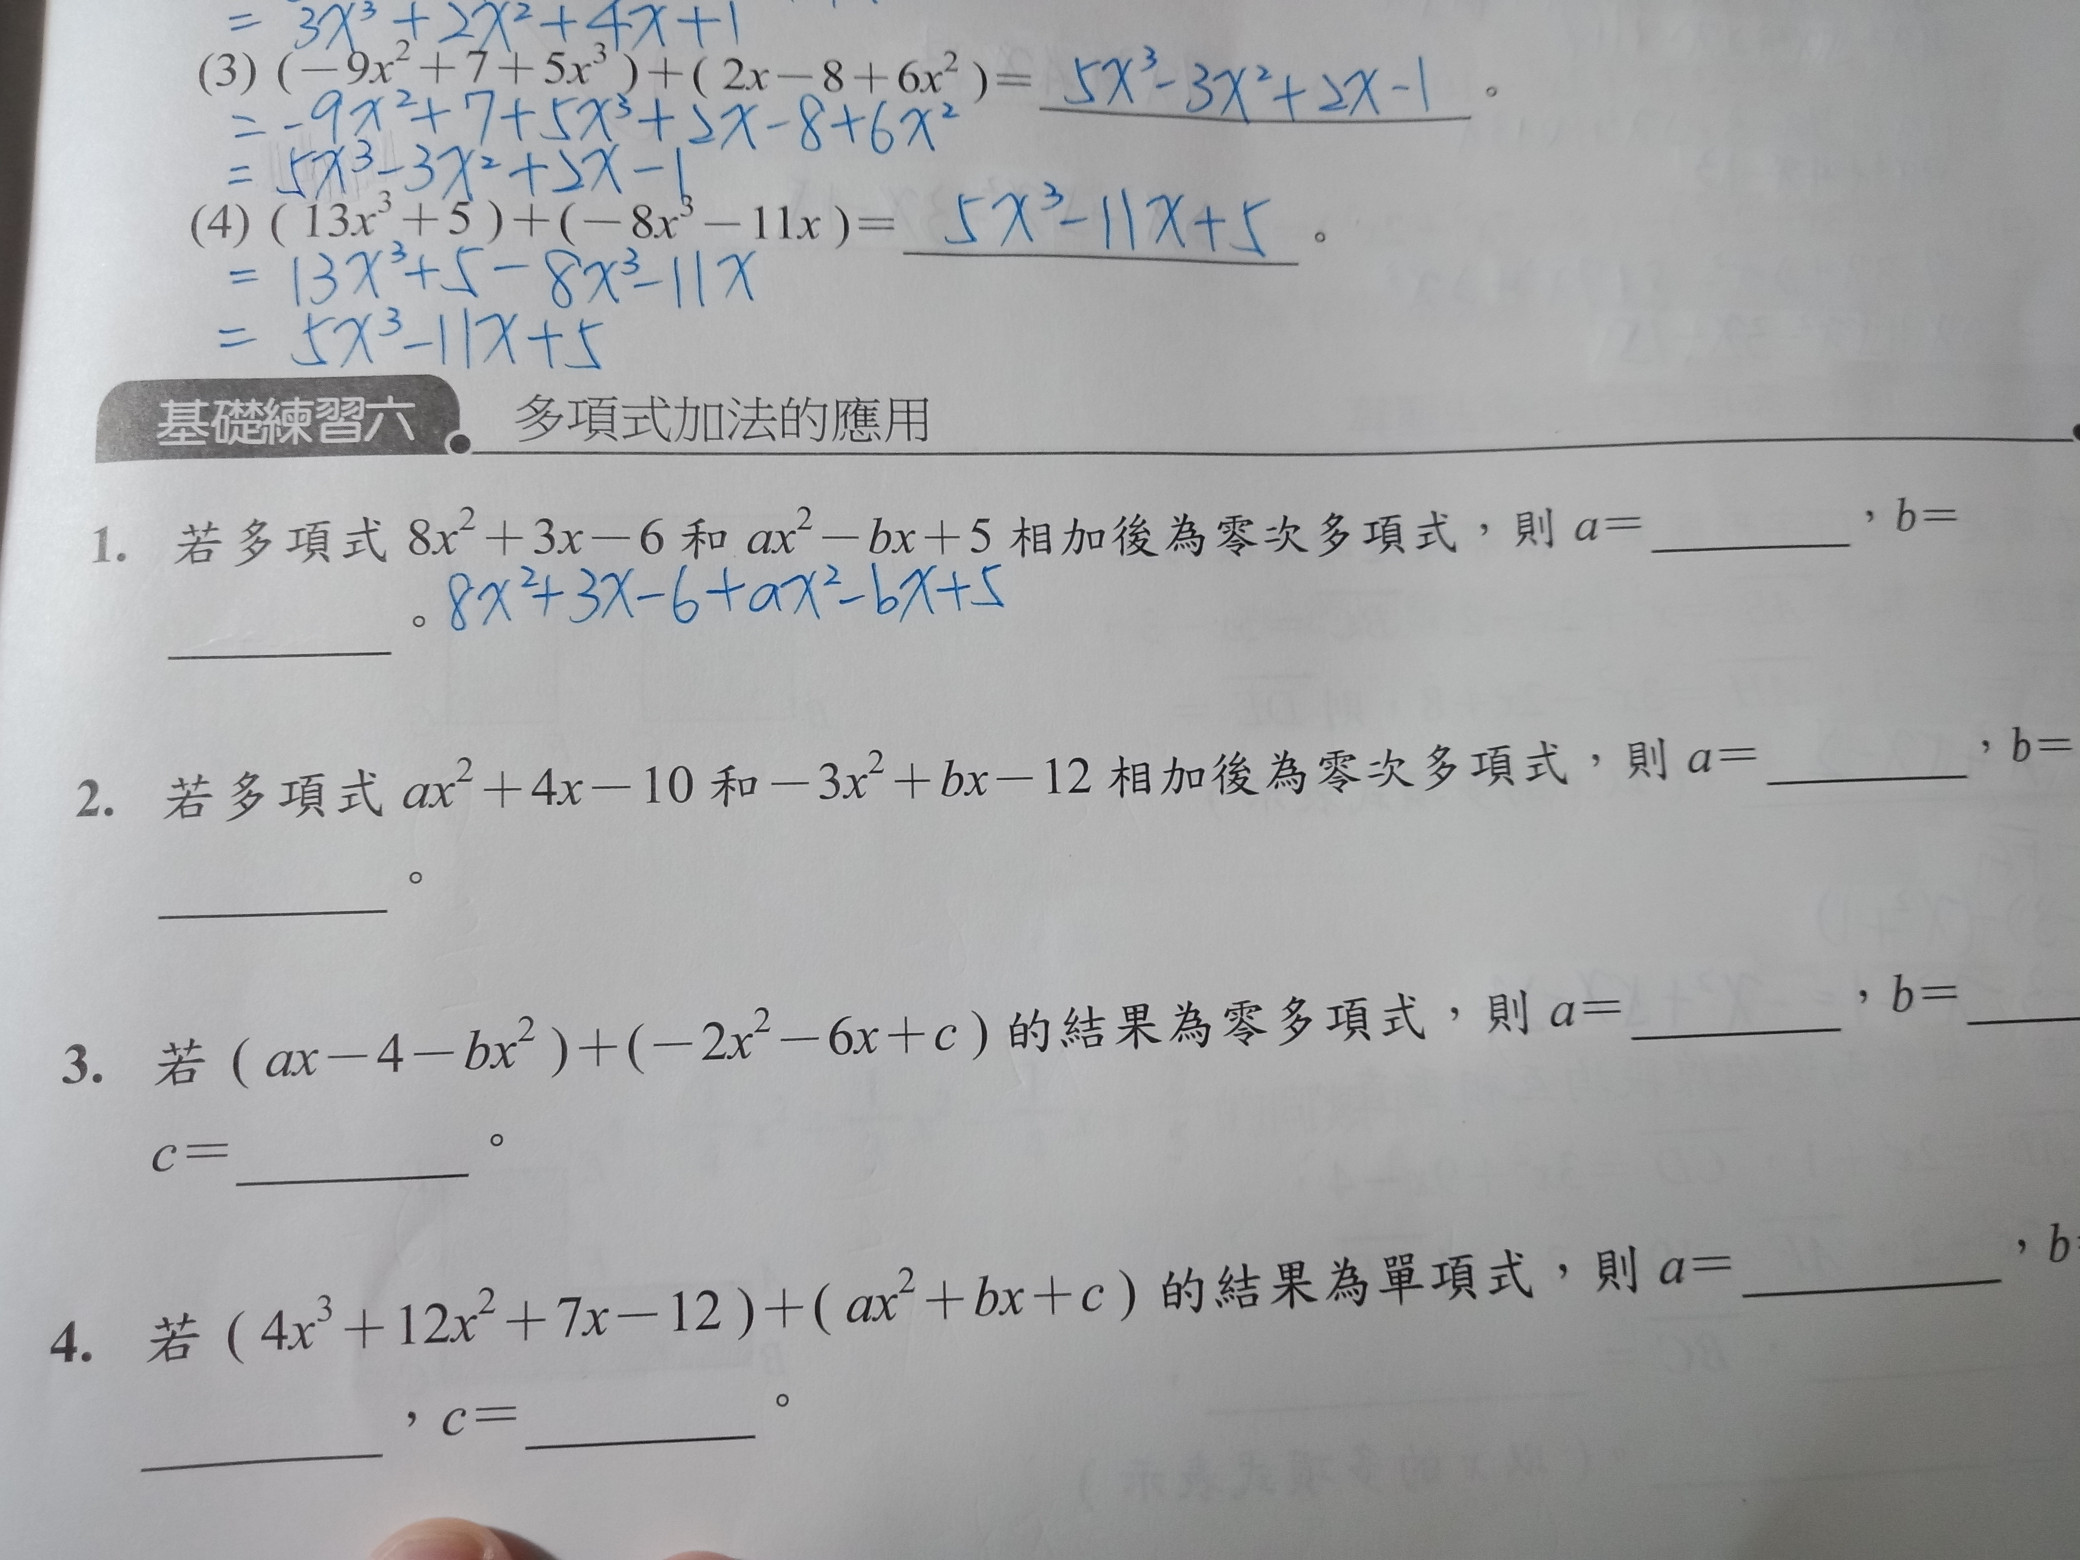 = 3x³+2x²+4x+1
(3) (−9x²+7+5x³)+(2x−8+6x²)= 5x³-3x²+2x-1 。
= -9x²+7+5x³+2x-8+6x²
= 5x³-3x²+2x-1
(4) (13x³+5)+(−8x³−11x)= 5x³-11x+5 。
= 13x³+5-8x³-11x
= 5x³-11x+5
基礎練習六 多項式加法的應用
1. 若多項式 8x²+3x−6 和 ax²−bx+5 相加後為零次多項式，則 a=________，b=
________。8x²+3x-6+ax²-bx+5
2. 若多項式 ax²+4x−10 和 −3x²+bx−12 相加後為零次多項式，則 a=________，b=
________。
3. 若 (ax−4−bx²)+(−2x²−6x+c) 的結果為零多項式，則 a=________，b=____
c=________。
4. 若 (4x³+12x²+7x−12)+(ax²+bx+c) 的結果為單項式，則 a=________，b
________，c=________。